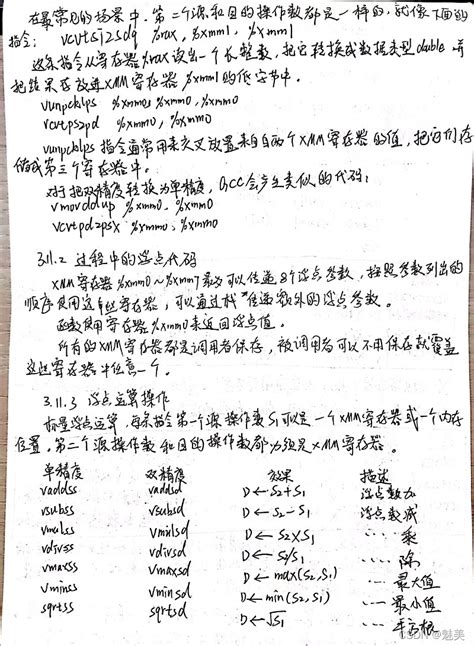 在最常见的场景中，第二个源和目的操作数都是一样的，就像下面的
指令： vcvtsi2sdq %rax, %xmm1, %xmm1
这条指令从寄存器%rax读出一个长整数，把它转换成数据类型double，并
把结果存放进XMM寄存器%xmm1的低字节中。
vunpcklps %xmm0, %xmm0, %xmm0
vcvtps2pd %xmm0, %xmm0
vunpcklps指令通常用来交叉放置来自两个XMM寄存器的值，把它们存
储到第三个寄存器中。
对于把双精度转换为单精度，GCC会产生类似的代码：
vmovddup %xmm0, %xmm0
vcvtpd2psx %xmm0, %xmm0
3.11.2 过程中的浮点代码
XMM寄存器%xmm0~%xmm7最多可以传递8个浮点参数，按照参数列出的
顺序使用这些寄存器，可以通过栈传递额外的浮点参数。
函数使用寄存器%xmm0来返回浮点值。
所有的XMM寄存器都是调用者保存，被调用者可以不用保存就覆盖
这些寄存器中任意一个。
3.11.3 浮点运算操作
标量浮点运算，每条指令第一个源操作数S1可以是一个XMM寄存器或一个内存
位置。第二个源操作数和目的操作数都必须是XMM寄存器。
单精度 双精度 效果 描述
vaddss vaddsd D←S2+S1 浮点数加
vsubss vsubsd D←S2-S1 浮点数减
vmulss vmulsd D←S2×S1 ···· 乘
vdivss vdivsd D←S2/S1 ···· 除
vmaxss vmaxsd D←max(S2,S1) ···· 最大值
vminss vminsd D←min(S2,S1) ···· 最小值
sqrtss sqrtsd D←√S1 ···· 平方根
CSDN @魅美